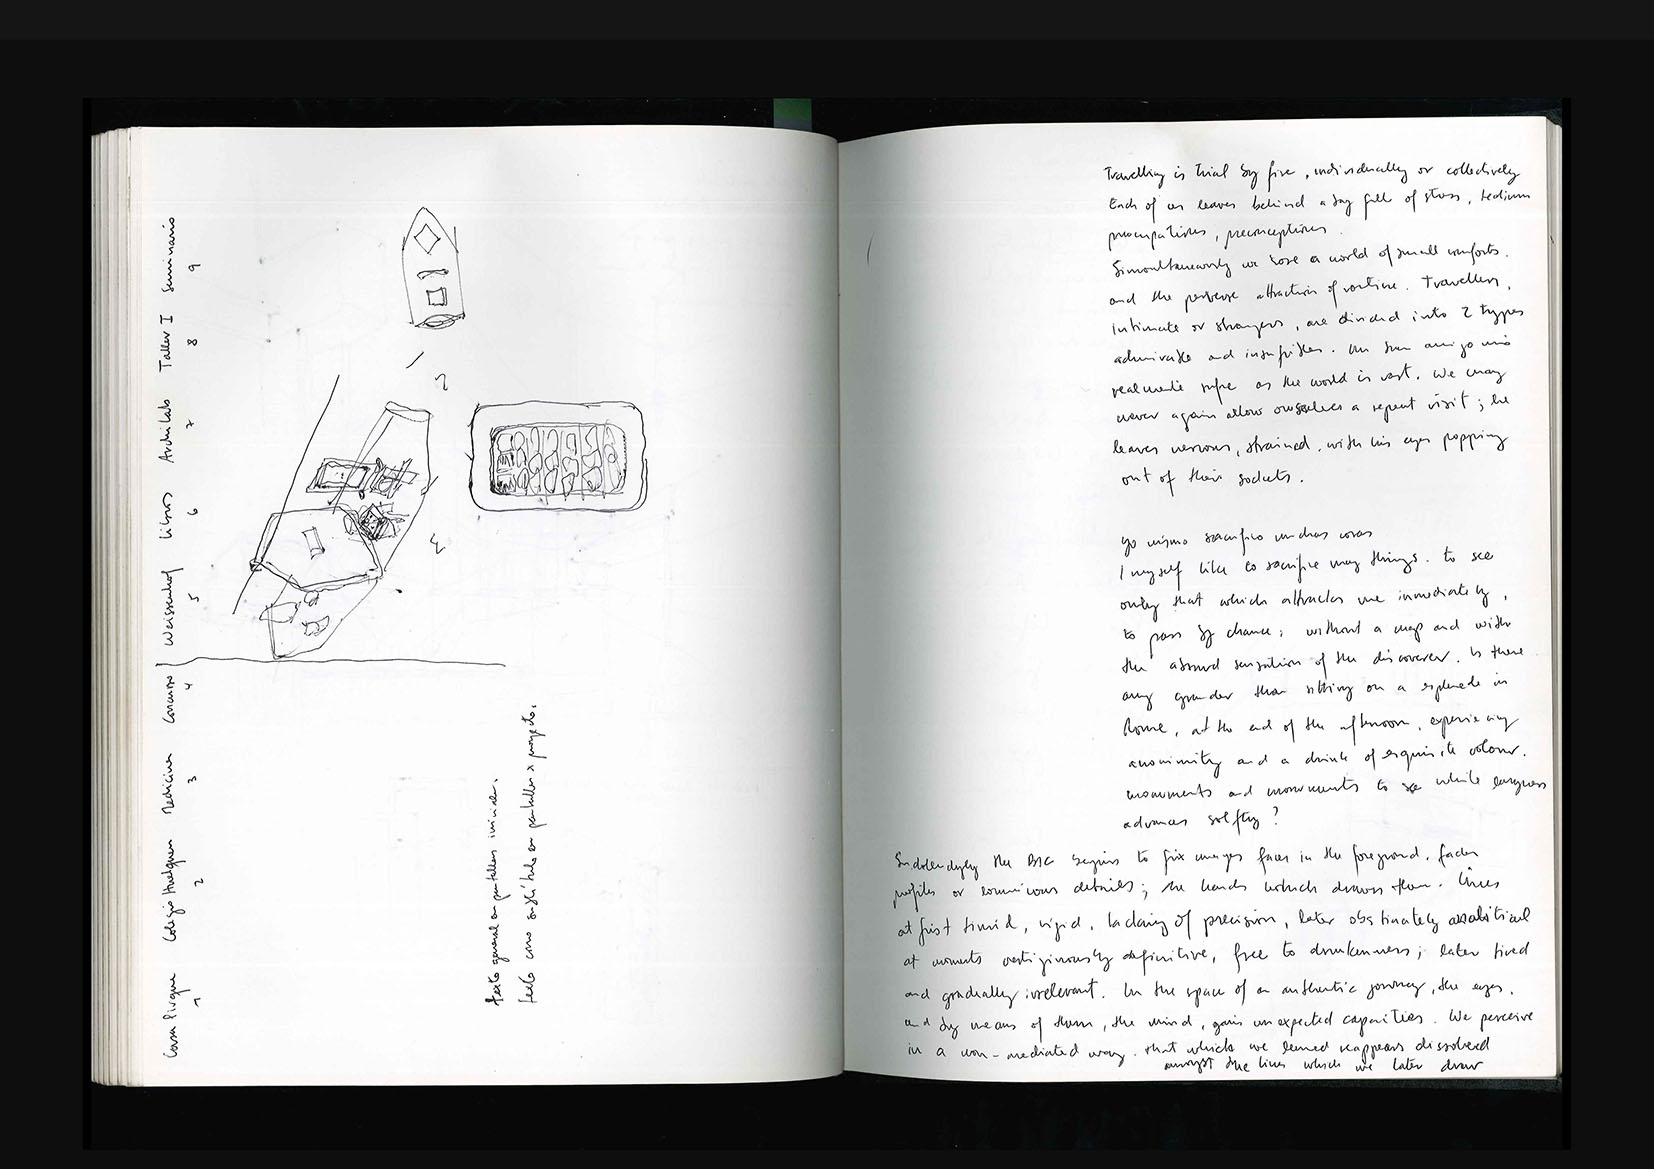 Casa Pirque Colegio Huelquen Medicina Concurso Weissenhof Libros Archilab Taller I Seminario
1 2 3 4 5 6 7 8 9
1
2
3
texto general en pantallas iniciales.
texto como subtítulo en pantallas x proyecto.
Travelling is trial by fire, individually or collectively
Each of us leaves behind a bag full of stress, tedium
preocupations, preconceptions.
Simoultaneously we lose a world of small comforts.
and the perverse attraction of routine. Travellers,
intimate or strangers, are divided into 2 types
admirable and insufribles. Un buen amigo mio
realmente sufre as the world is vast. We may
never again allow ourselves a repeat visit; he
leaves nervous, strained, with his eyes popping
out of their sockets.
yo mismo sacrifico muchas cosas
I myself like to sacrifice many things. to see
only that which attracts me inmediately,
to pass by chance; without a map and with
the absurd sensation of the discoverer. Is there
any grander than sitting on a esplanade in
Rome, at the end of the afternoon, experiencing
anonimity and a drink of exquisite colour.
monuments and monuments to see while lazyness
advances softly?
Suddendlyly the BIC begins to fix images faces in the foreground, faded
profiles or luminous details; the hands which draws them. Lines
at first timid, rigid, lacking of precision, later obstinately analitical
at moments vertiginously definitive, free to drunkenness; later tired
and gradually irrelevant. In the space of an authentic journey, the eyes,
and by means of them, the mind, gain unexpected capacities. We perceive
in a non-mediated way. that which we learned reappears dissolved
amongst the lines which we later draw